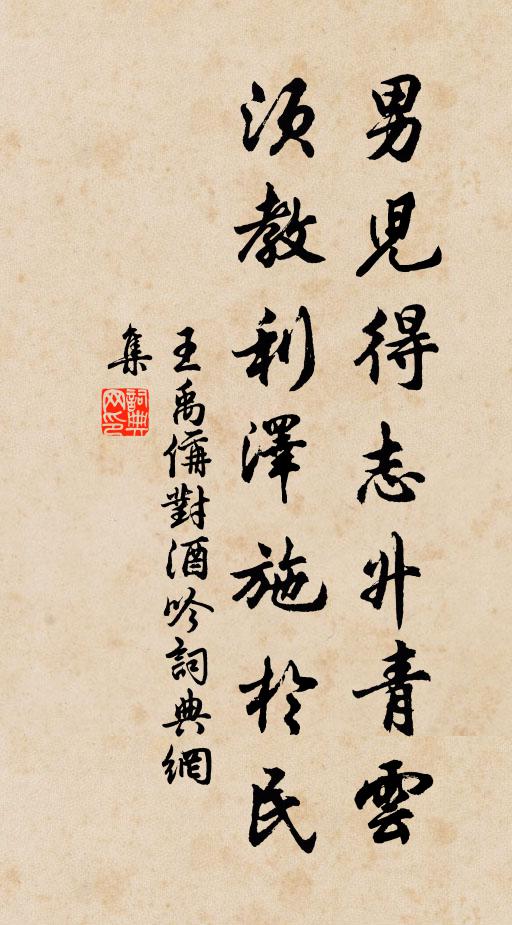 男児得志升青雲
須教利澤施於民
王禹偁對酒吟詞典網
集
詞典
网印